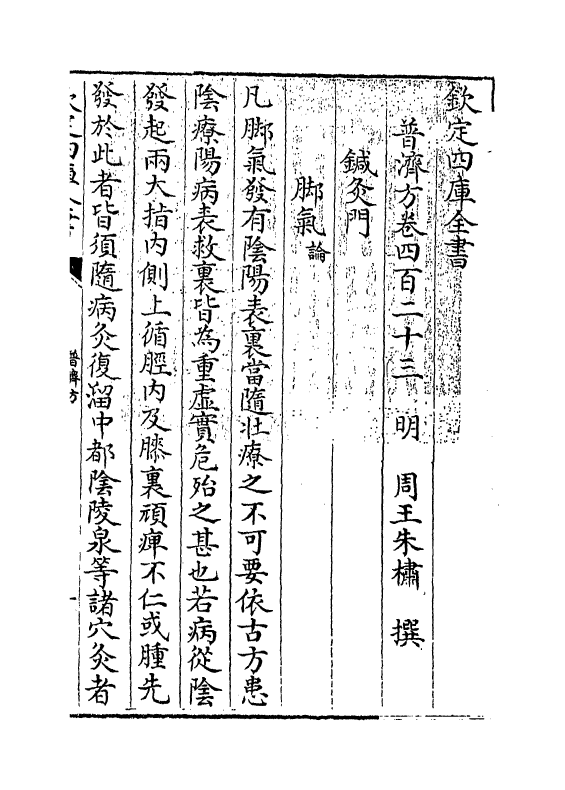 欽定四庫全書
普濟方卷四百二十三　明　周王朱橚　撰
鍼灸門
脚氣論
凡脚氣發有陰陽表裏當隨壯療之不可要依古方患
陰療陽病表救裏皆為重虛實危殆之甚也若病從陰
發起兩大指内側上循脛内及膝裏頑痺不仁或腫先
發於此者皆須隨病灸復溜中都陰陵泉等諸穴灸者
普濟方
一